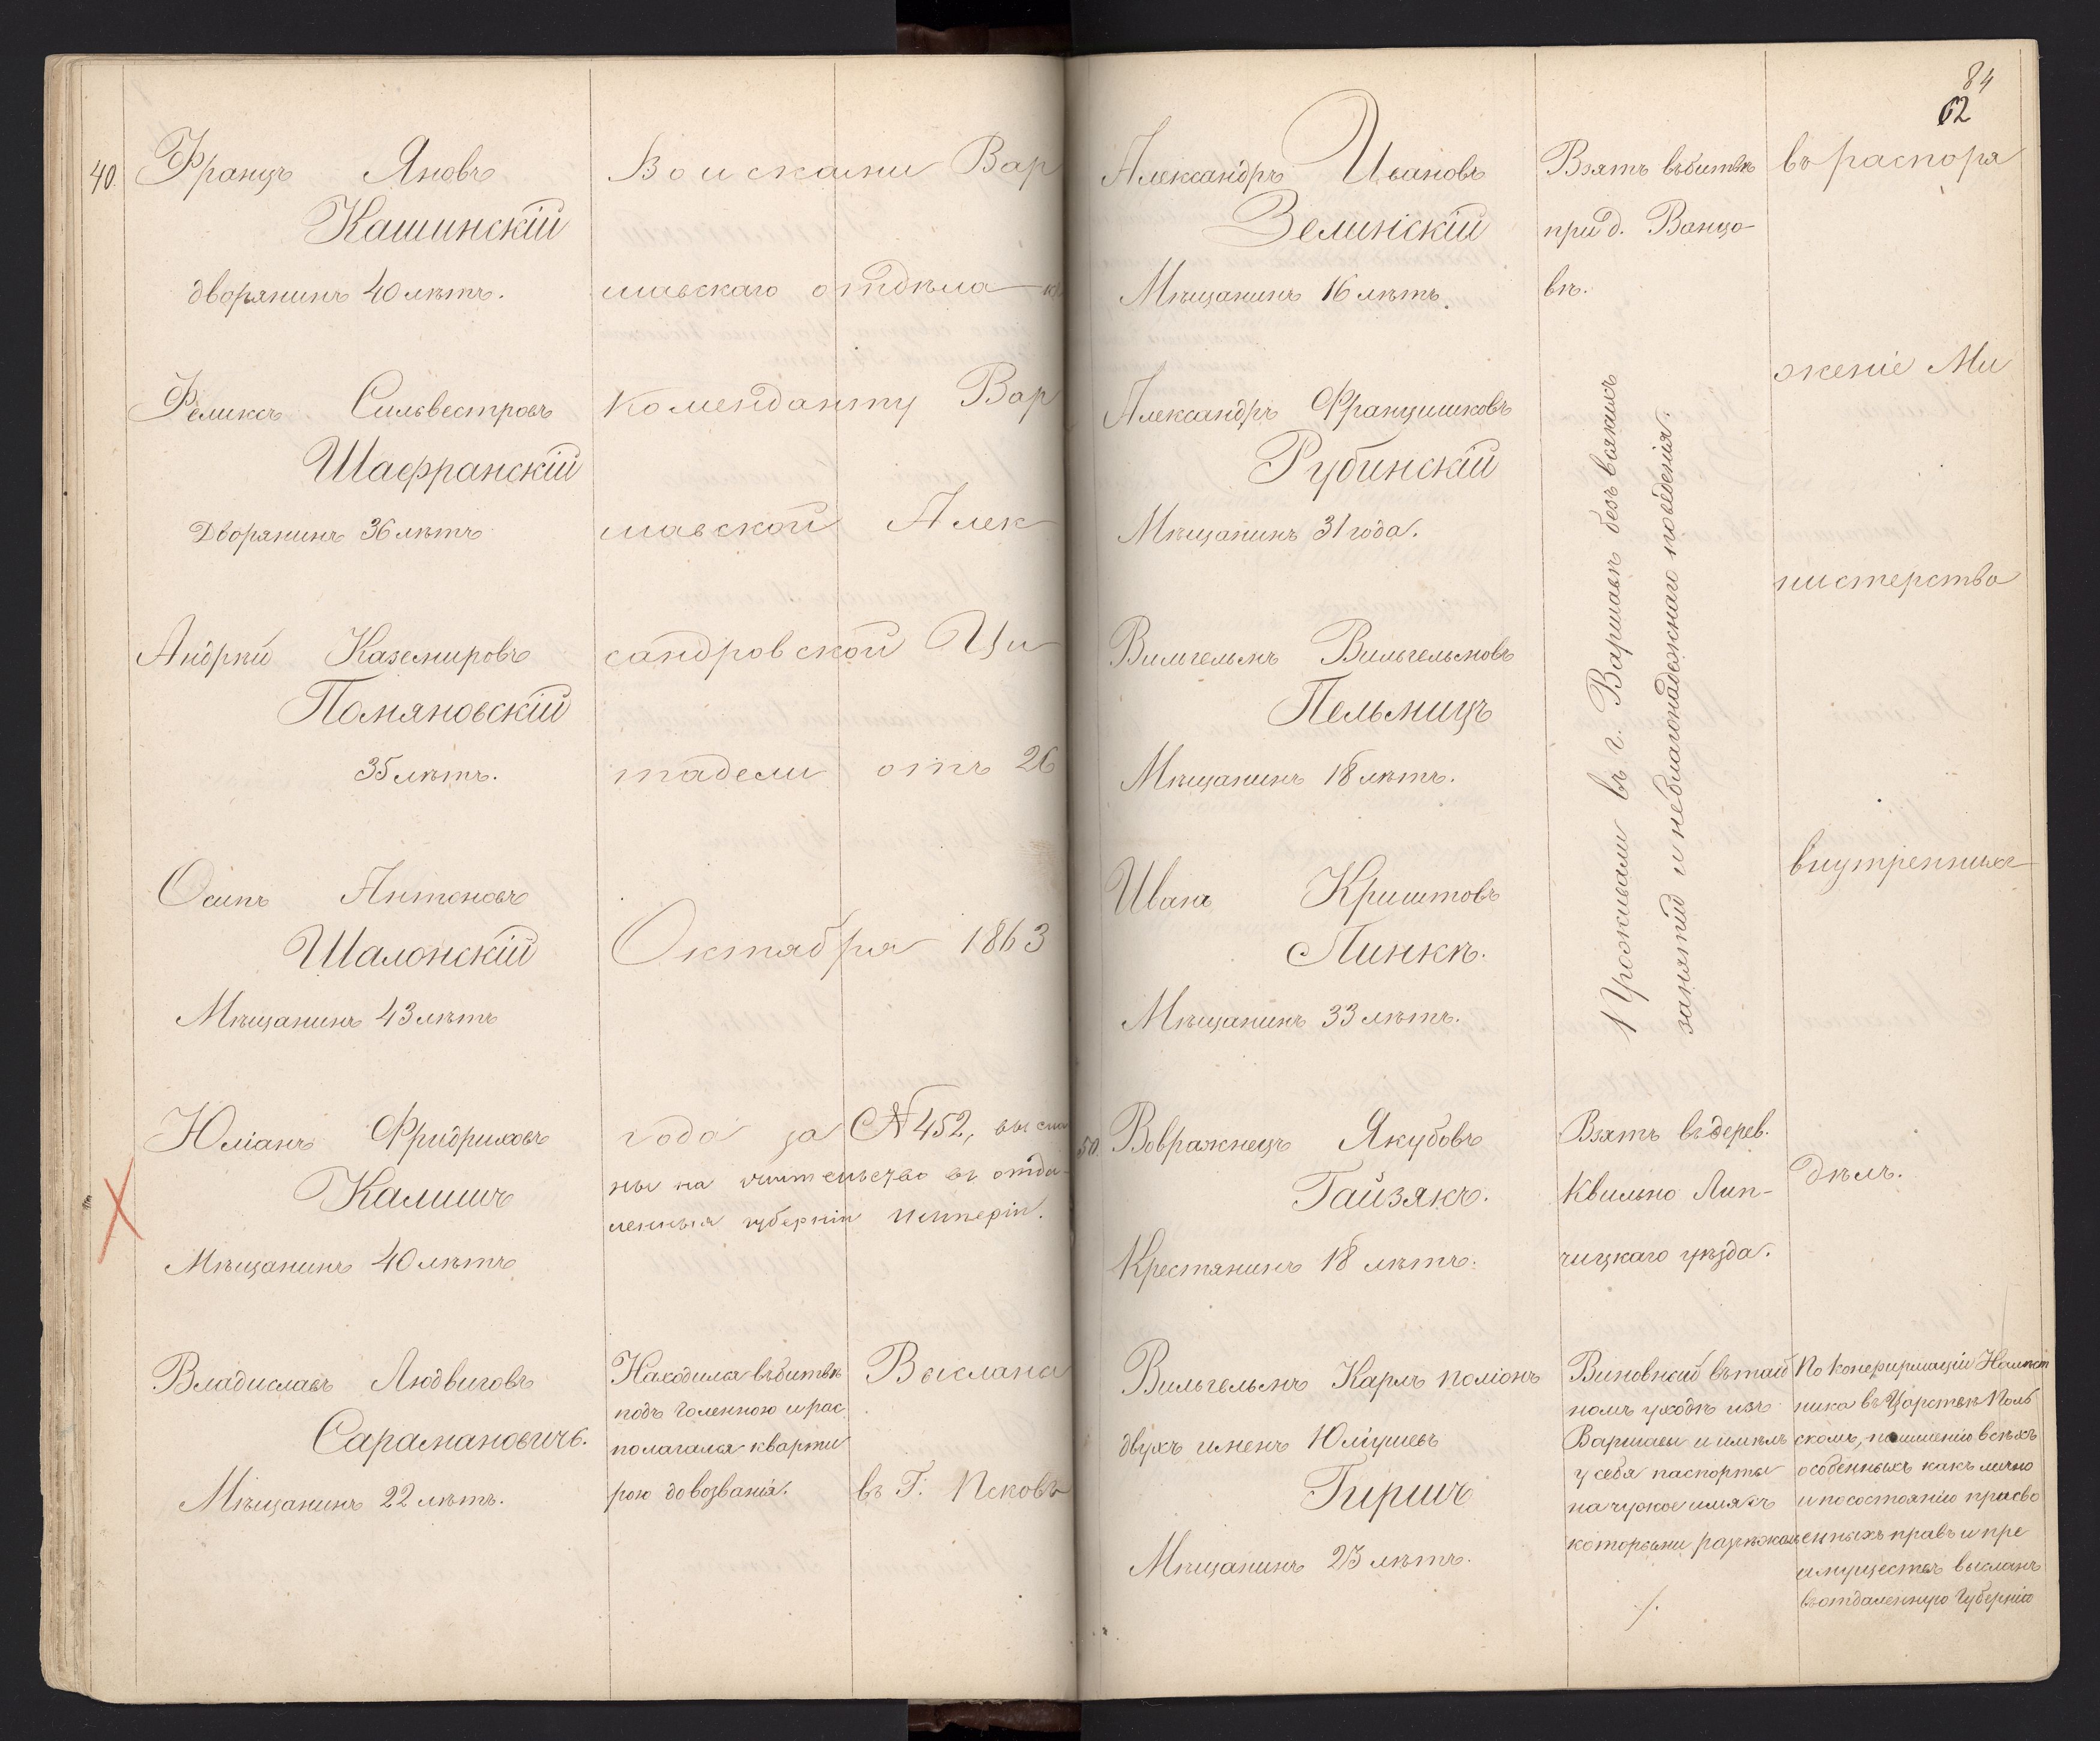 40.
Францъ Яновъ
Кашинскій
дворянинъ 40 лѣтъ.
Феликсъ Сильвестровъ
Шафранскій
Дворянинъ 36 лѣтъ
Андрѣй Каземировъ
Помяновскій
35 лѣтъ.
Осипъ Антоновъ
Шалонскій
Мѣщанинъ 43 лѣтъ
Юліанъ Фридриховъ
Калишъ
Мѣщанинъ 40 лѣтъ
Владиславъ Людвиговъ
Сарамановичъ.
Мѣщанинъ 22 лѣтъ.
Войсками Вар
шавскаго отдѣла
Коменданту Вар
шавской Алек
сандровской Ци
тадели отъ 26
Октября 1863
года за № 452, высла
ны на жительство въ отда-
ленныя губерніи Имперіи.
Находился въ битвѣ
подъ Голенною и рас
полагался кварти
рою до возванія.
Высланъ
въ Г. Псковъ
84
62
Александръ Ивановъ
Зелинскій
Мѣщанинъ 16 лѣтъ.
Александръ Францишковъ
Рубинскій
Мѣщанинъ 31 года.
Вильгельмъ Вильгельмовъ
Пельницъ
Мѣщанинъ 18 лѣтъ.
Иванъ Криштовъ
Линкъ.
Мѣщанинъ 33 лѣтъ.
50
Вовражнецъ Якубовъ
Гайзякъ.
Крестянинъ 18 лѣтъ.
Вильгельмъ Карлъ Поліонъ
двухъ именъ Юліушевъ
Гиршъ
Мѣщанинъ 23 лѣтъ.
Взятъ въ битвѣ
при д. Ванцо-
вѣ.
Проживали въ г. Варшавѣ безъ всякихъ
занятій и неблагонадежнаго поведенія.
Взятъ въ дерев.
Квильно Лип-
чицкаго уѣзда.
Виновный въ тай
номъ уходѣ изъ
Варшавы и имѣлъ
у себя паспорты
на чужое имя съ
которыми разъѣзжалъ
въ распоря
женіе Ми
нистерства
внутреннихъ
дѣлъ.
По конфирмаціи Намѣст
ника въ Царствѣ Поль
скомъ, по лишеніи всѣхъ
особенныхъ какъ лично
и по состоянію присво
енныхъ правъ и пре
имуществъ высланъ
въ отдаленную Губернію